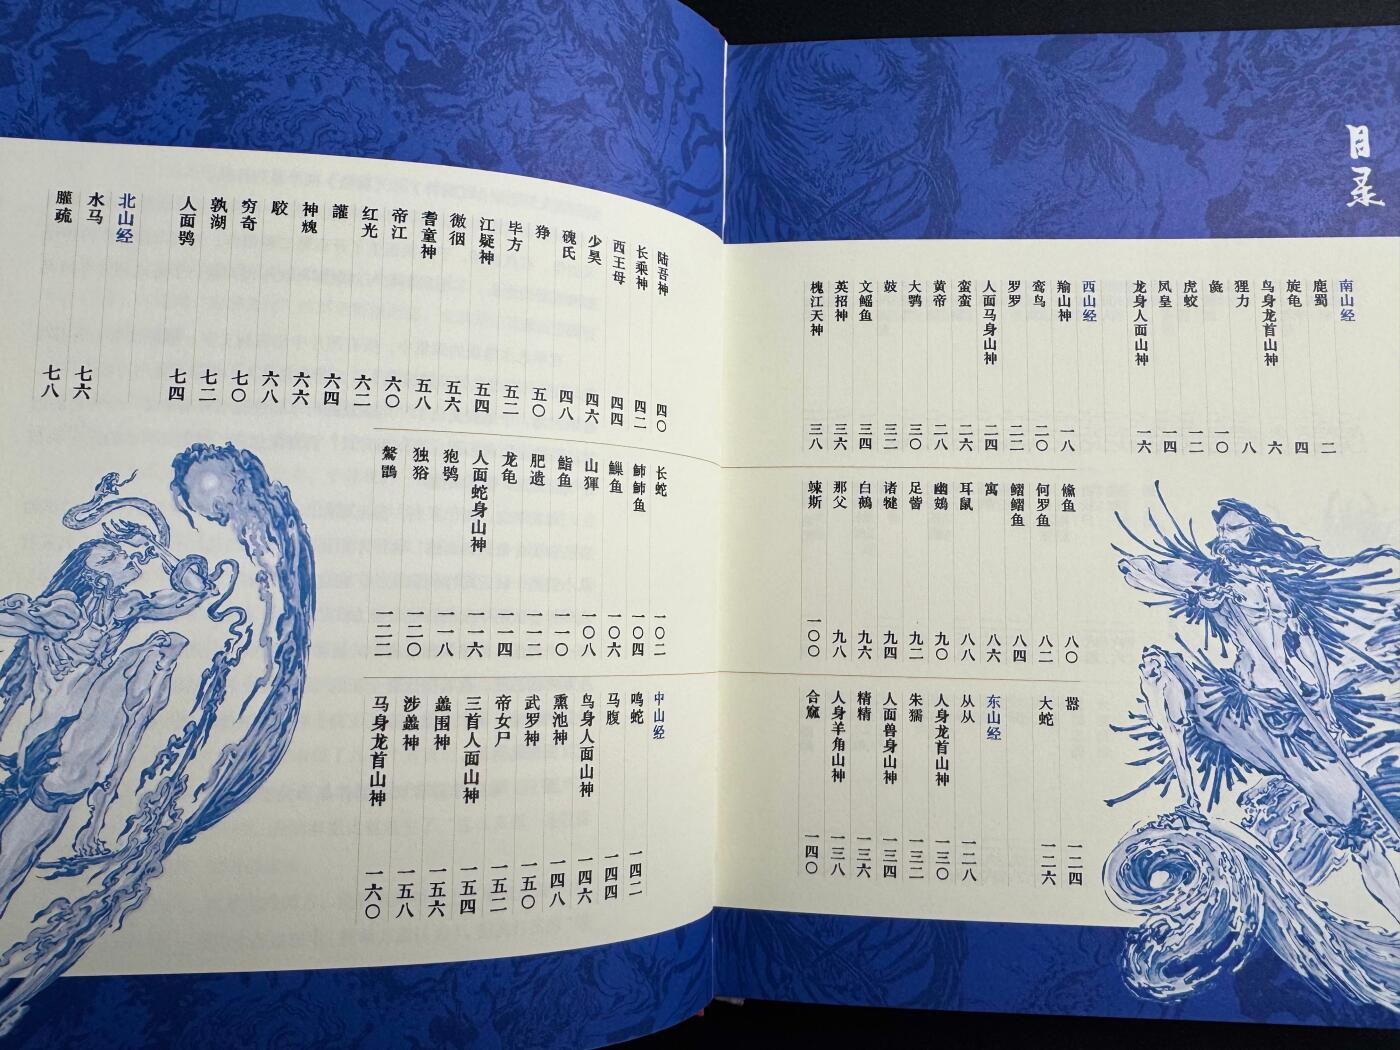 目录
南山经
鹿蜀 二
旋龟 四
鸟身龙首山神 六
狸力 八
彘 一〇
虎蛟 一二
凤皇 一四
龙身人面山神 一六
西山经
羭山神 一八
鸾鸟 二〇
罗罗 二二
人面马身山神 二四
蛮蛮 二六
黄帝 二八
大鹗 三〇
鼓 三二
文鳐鱼 三四
英招神 三六
槐江天神 三八
陆吾神 四〇
长乘神 四二
西王母 四四
少昊 四六
磈氏 四八
狰 五〇
毕方 五二
江疑神 五四
五六
耆童神 五八
帝江 六〇
红光 六二
讙 六四
神 六六
駮 六八
穷奇 七〇
孰湖 七二
人面鸮 七四
北山经
水马 七六
疏 七八
鯈鱼 八〇
何罗鱼 八二
鳛鳛鱼 八四
寓 八六
耳鼠 八八
幽鴳 九〇
足訾 九二
诸犍 九四
白鵺 九六
那父 九八
竦斯 一〇〇
长蛇 一〇二
鱼 一〇四
鱼 一〇六
山 一〇八
鮨鱼 一一〇
肥遗 一一二
龙龟 一一四
人面蛇身山神 一一六
狍鸮 一一八
独狢 一二〇
一二二
嚣 一二四
大蛇 一二六
东山经
从从 一二八
人身龙首山神 一三〇
朱獳 一三二
人面兽身山神 一三四
精精 一三六
人身羊角山神 一三八
合窳 一四〇
中山经
鸣蛇 一四二
马腹 一四四
鸟身人面山神 一四六
熏池神 一四八
武罗神 一五〇
帝女尸 一五二
三首人面山神 一五四
蠱围神 一五六
涉蠱神 一五八
马身龙首山神 一六〇